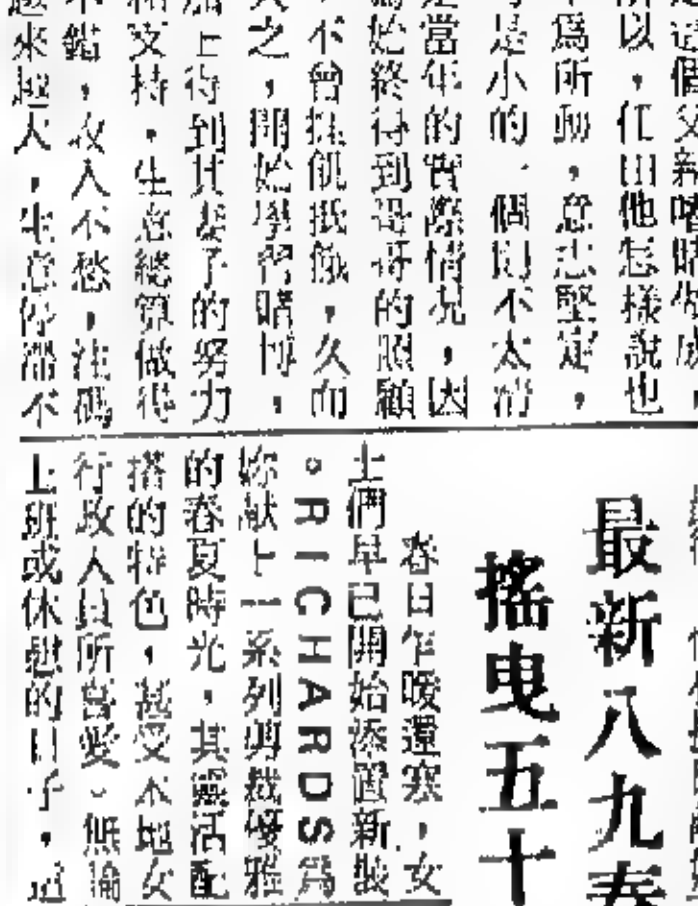 這個父親嗜賭
所以，任由他怎樣說也
為所動，意志堅定，
是小的一個則不太清
當年的實際情況，因
始終得到哥哥的照顧
不曾捱飢抵餓，久而
久之，開始學習賭博，
加上得到其妻子的努力
和支持，生意總算做得
不錯，收入不愁，注碼
越來越大，生意停滯不
最新八九春
搖曳五十
春日乍暖還寒，女
士們早已開始添置新裝
。RICHARDS為
妳献上一系列剪裁優雅
的春夏時光，其靈活配
搭的特色，甚受本地女
行政人員所喜愛。無論
上班或休憩的日子，